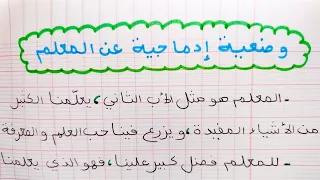 وضعية إدماجية عن المعلم
- المعلم هو مثل الأب الثاني، يعلّمنا الكثير
من الأشياء المفيدة، ويزرع فينا حب العلم والمعرفة
- للمعلم فضل كبير علينا، فهو الذي يعلمنا